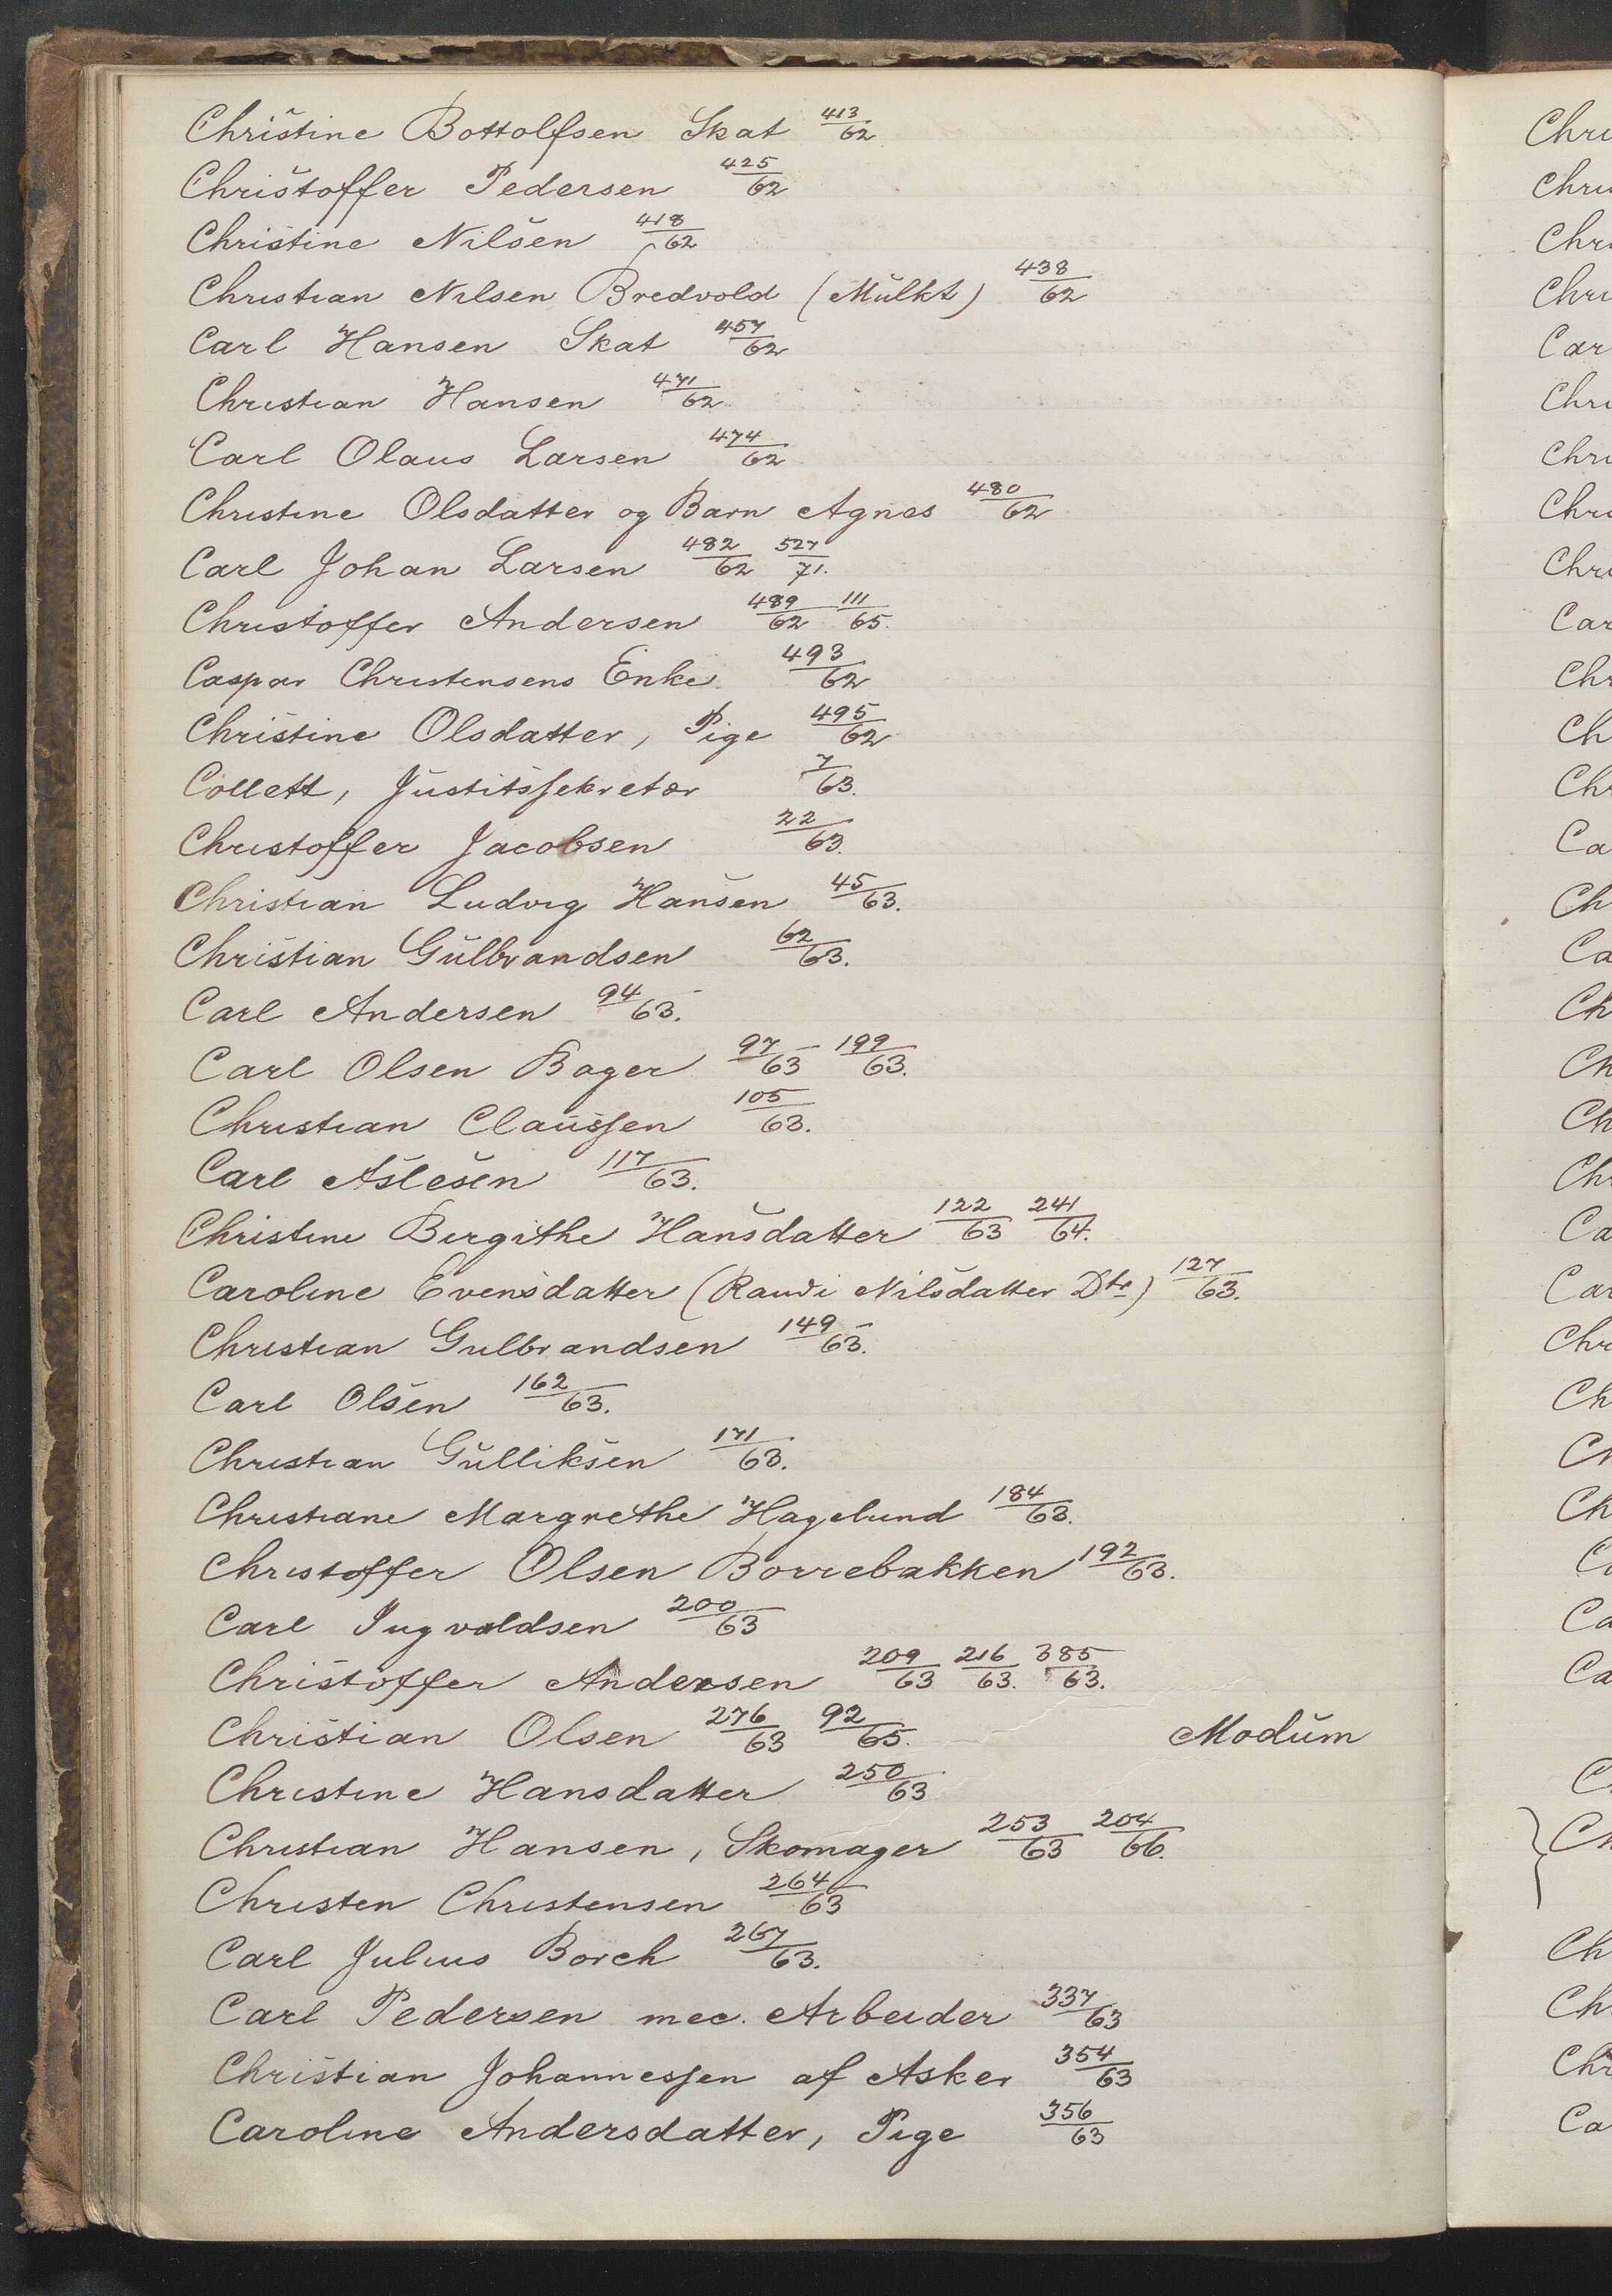 Christine Bottolfsen Skat 413/62
Christoffer Pedersen 425/62
Christine Nilsen 418/62
Christian Nilsen Bredvold (Mulkt) 438/62
Carl Hansen Skat 457/62
Christian Hansen 471/62
Carl Olaus Larsen 474/62
Christine Olsdatter og Barn Agnes 480/62
Carl Johan Larsen 482/62 527/71.
Christoffer Andersen 489/62 111/65.
Caspar Christensens Enke 493/62
Christine Olsdatter, Pige 495/62
Collett, Justitssekretær 7/63.
Christoffer Jacobsen 22/63.
Christian Ludvig Hansen 45/63.
Christian Gulbrandsen 62/63.
Carl Andersen 94/63.
Carl Olsen Bager 97/63 199/63.
Christian Claussen 105/63.
Carl Aslesen 117/63.
Christine Birgithe Hansdatter 122/63 241/64.
Caroline Evensdatter (Randi Nilsdatter Dtr) 127/63.
Christian Gulbrandsen 149/63.
Carl Olsen 162/63.
Christian Gulliksen 171/63.
Christiane Margrethe Hagelund 184/63.
Christoffer Olsen Borrebakken 192/63.
Carl Ingvaldsen 200/63
Christoffer Andersen 209/63 216/63. 385/63.
Christian Olsen 276/63 92/65. Modum
Christine Hansdatter 250/63
Christian Hansen, Skomager 253/63 204/66.
Christen Christensen 264/63
Carl Julius Borch 267/63.
Carl Pedersen mec. Arbeider 337/63
Christian Johannessen af Asker 354/63
Caroline Andersdatter, Pige 356/63